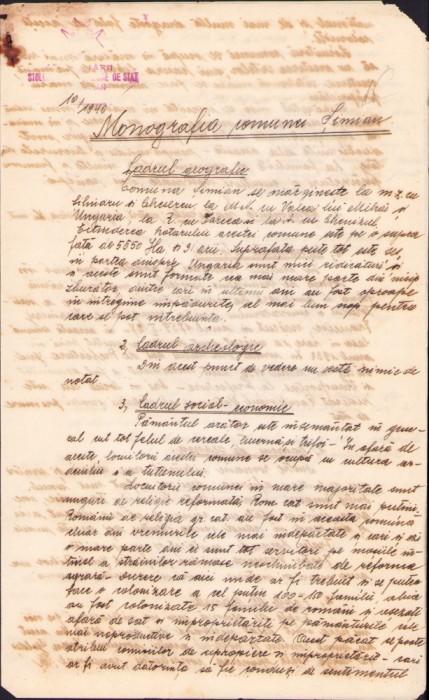 DE STAT
10/1940
Monografia comunei Șimian
Cadrul geografic
Comuna Simian se mărginește la m.z. cu
Silindru și Chereru la N. cu Valea lui Mihai și
Ungaria, la Z. cu Tarcea și la S. cu Chenizul.
Extinderea hotarului acestei comune este pe o supra
față de 5850 Ha și 9 arii. Suprafața peste tot este șes,
în partea dinspre Ungaria sunt mici ridicături și
aceste sunt formate cea mai mare parte din nisip
sburător, dintre cari în ultimii ani au fost aproape
în întregime împădurite, cel mai bun nisip pentru
care se pot întrebuința.
2, Cadrul archeologic
Din acest punct de vedere nu este nimic de
notat.
3, Cadrul social-economic
Pământul arător este însemântat în gene
ral cu tot felul de cereale, lucernă și trifoi. În afară de
aceste locuitorii acestei comune se ocupă cu cultura ar
deiului și a tutunului.
Locuitorii comunei în mare majoritate sunt
unguri de religie reformată, Rom. cat. sunt mai puțini.
Românii de religia gr. cat. au fost în această comună
chiar din vremurile cele mai îndepărtate și cari și azi
o mare parte din ei sunt tot servitori pe moșiile
a străinilor rămase neschimbate de reforma
agrară. durere că aici unde ar fi trebuit și se putea
face o colonizare a cel puțin 100-150 familii, abia
au fost colonizate 15 familii de români și așezate
afară de sat și împroprietărite pe pământurile cele
mai neproductive și îndepărtate. Acest păcat se poate
atribui comisiilor de expropiere și împroprietărire cari
ar fi avut datorința să fie conduși de sentimentul